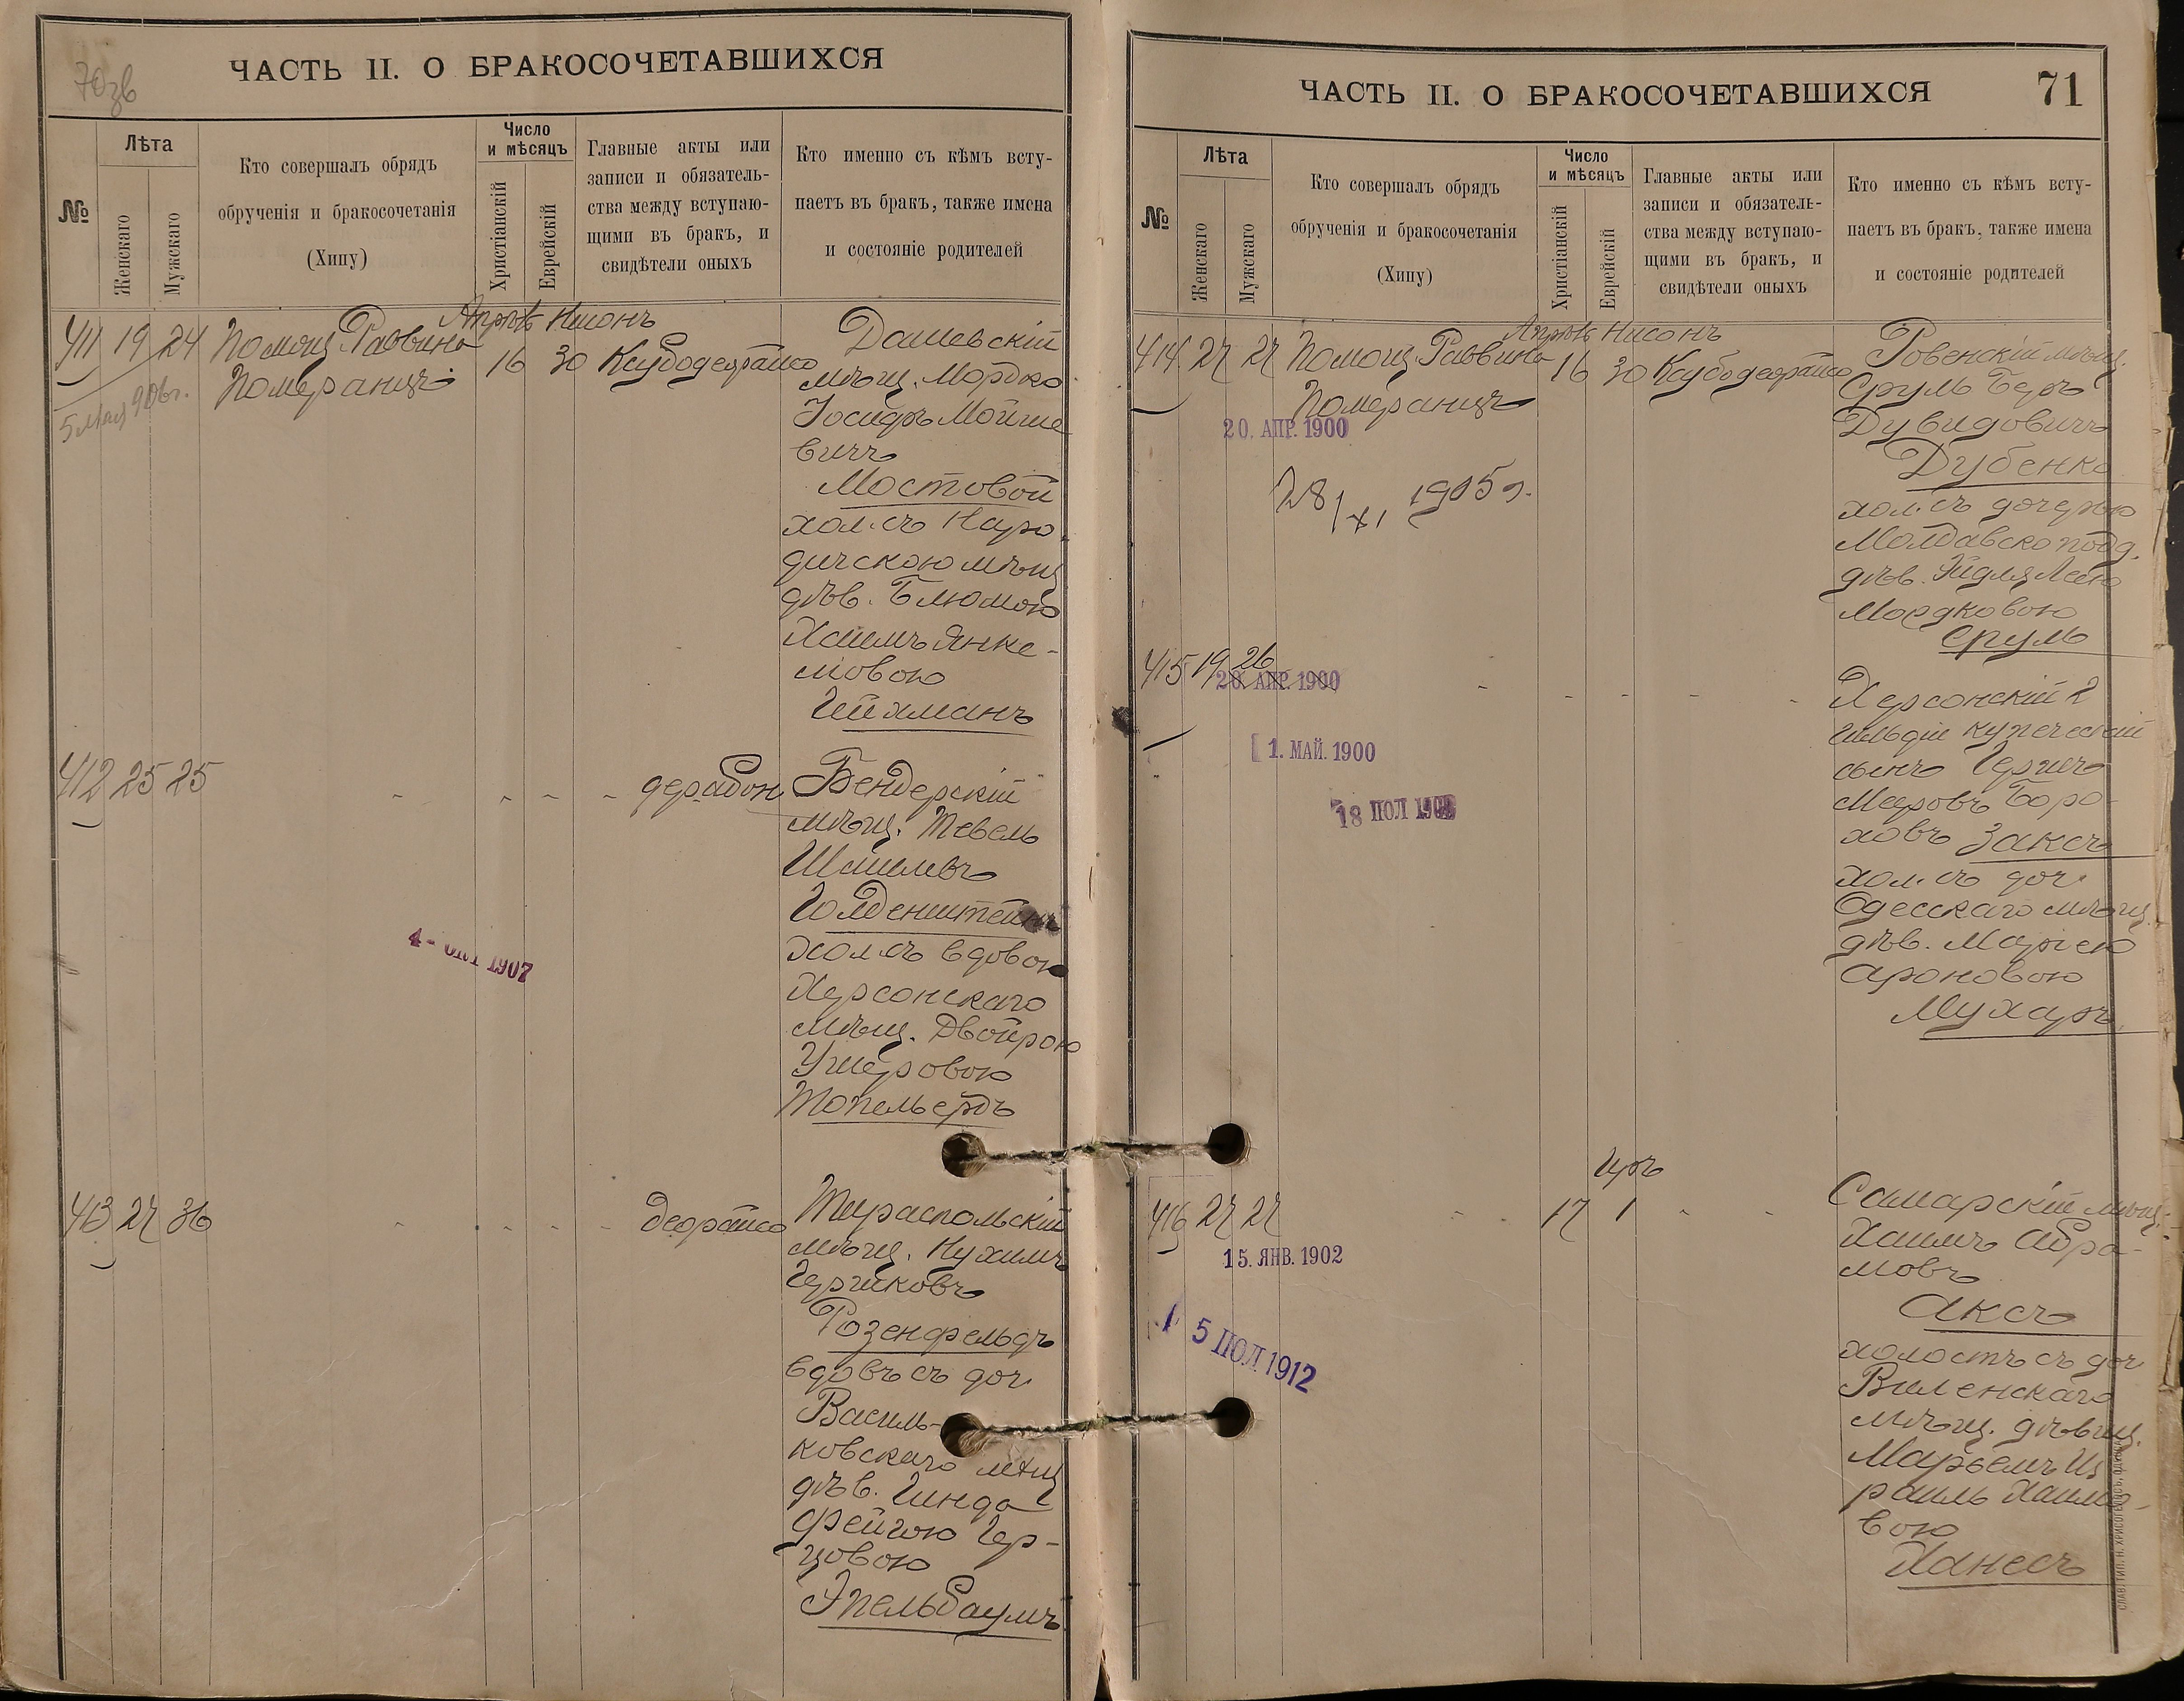 70зв
ЧАСТЬ II. О БРАКОСОЧЕТАВШИХСЯ
№
Лѣта
Женскаго
Мужскаго
Кто совершалъ обрядъ
обрученія и бракосочетанія
(Хипу)
Число
и мѣсяцъ
Христіанскій
Еврейскій
Главные акты или
записи и обязатель-
ства между вступаю-
щими въ бракъ, и
свидѣтели оныхъ
Кто именно съ кѣмъ всту-
паетъ въ бракъ, также имена
и состояніе родителей
411 19 24
Помощ. Раввина
Померанцъ
Апрѣль Нисонъ
16 30
5 мая 906г.
Дашевскій
мѣщ. Мордко
Іосифъ Мойше
вичъ
Мостовой
хол. съ Наро
дичскою мѣщ
дѣв. Блюмою
Хаимъ Янке-
лiовою
Гойхманъ
412 25 25
Бендерскій
мѣщ. Тевель
Шмилевъ
Голденштейнъ
хол. съ вдовою
Херсонскаго
мѣщ. Двойрою
Ушеровою
4 - ОКТ 1907
413 27 36
Тираспольскій
мѣщ. Нухимъ
Гершковъ
Розенфельдъ
вдовъ съ доч.
Василь-
ковскаго мѣщ
дѣв. Гинда
Фейгою Гер-
цовою
Эпельбаумъ
ЧАСТЬ II. О БРАКОСОЧЕТАВШИХСЯ
71
№
Лѣта
Женскаго
Мужскаго
Кто совершалъ обрядъ
обрученія и бракосочетанія
(Хипу)
Число
и мѣсяцъ
Христіанскій
Еврейскій
Главные акты или
записи и обязатель-
ства между вступаю-
щими въ бракъ, и
свидѣтели оныхъ
Кто именно съ кѣмъ всту-
паетъ въ бракъ, также имена
и состояніе родителей
414 27 27
Помощ. Раввина
Померанцъ
Апрѣль Нисонъ
16 30
20. АПР. 1900
28/XI 1905 г.
Ровенскій мѣщ.
Сруль Беръ
Дувидовичъ
Дубенко
хол. съ дочерью
Молдавско подд.
Мордковою
Сруль
415 19 26
20. АПР. 1900
1. МАЙ. 1900
18 ІЮЛ
Херсонскій 2
гильдіи купеческій
сынъ Гершъ
Мееровъ Боро-
ховъ Заксъ
хол. съ доч.
Одесскаго мѣщ.
дѣв. Маріею
Ароновою
Мухаръ
416 27 27
17 1
Иръ
15. ЯНВ. 1902
5 ІЮЛ 1912
Самарскій мѣщ.
Хаимъ Абра-
мовъ
Аксъ
холостъ съ доч
Виленскаго
мѣщ. дѣвиц.
Марьемъ Из
раиль Хаимо-
вою
Ханесъ